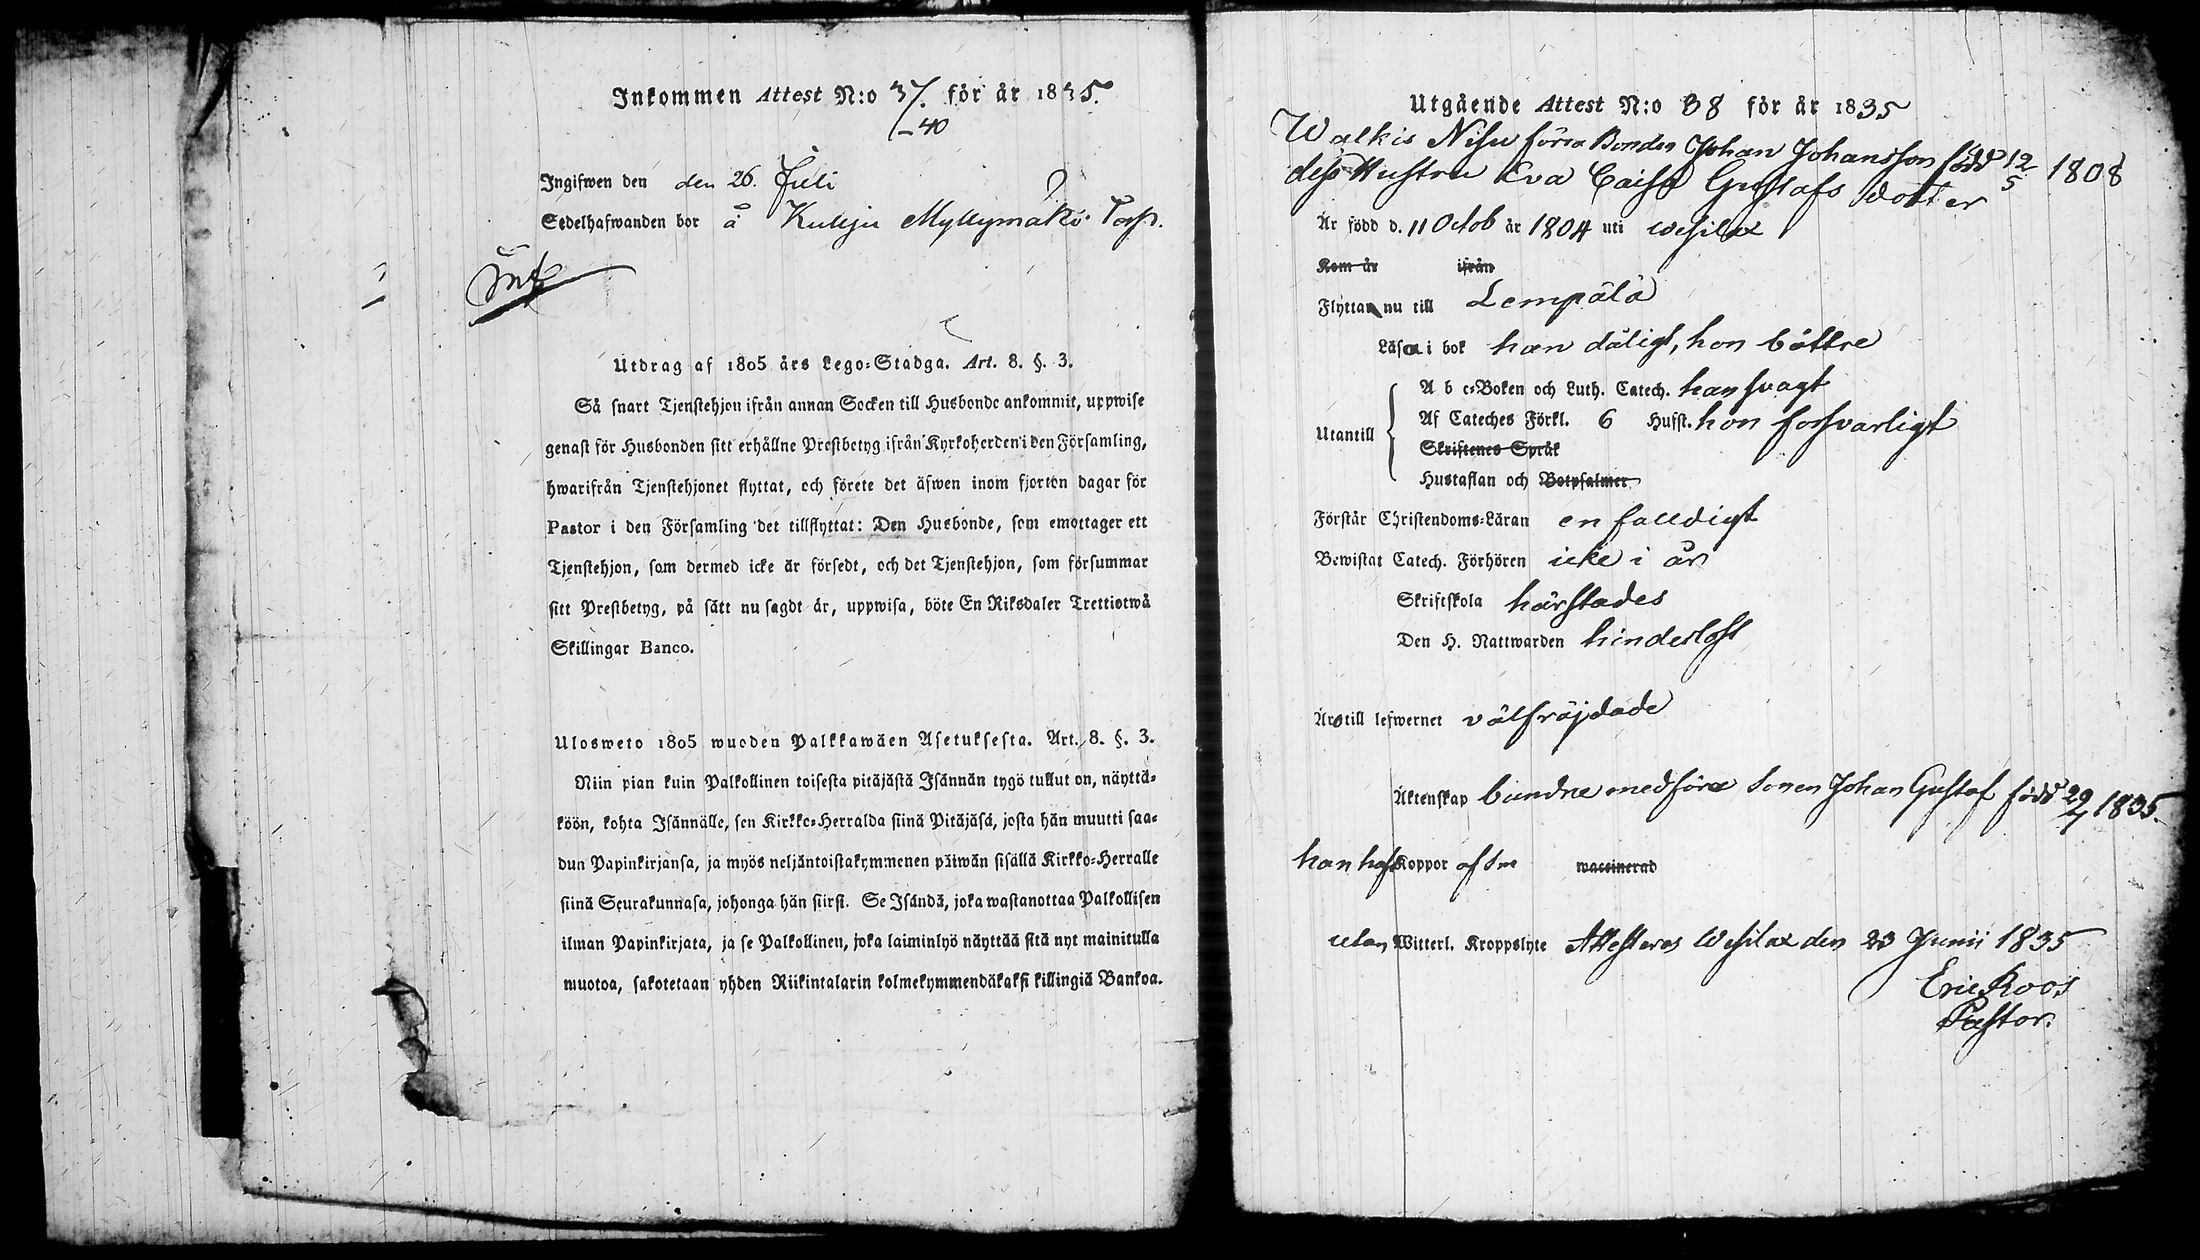 Inkommen Attest N:o 37. för år 1835.
–40
Ingifwen den den 26. Juli
Sedelhafwanden bor å Kulju Myllymäki Torp.
Utdrag af 1805 års Lego-Stadga. Art. 8. §. 3.
Så snart Tjenstehjon ifrån annan Socken till Husbonde ankommit, uppwise
genast för Husbonden sitt erhållne Prestbetyg ifrån Kyrkoherden i den Församling,
hwarifrån Tjenstehjonet flyttat, och förete det äfwen inom fjorton dagar för
Pastor i den Församling det tillflyttat: Den Husbonde, som emottager ett
Tjenstehjon, som dermed icke är försedt, och det Tjenstehjon, som försummar
sitt Prestbetyg, på sätt nu sagdt är, uppwisa, böte En Riksdaler Trettiotwå
Skillingar Banco.
Ulosweto 1805 wuoden Palkkawäen Asetuksesta. Art. 8. §. 3.
Niin pian kuin Palkollinen toisesta pitäjästä Isännän tygö tullut on, näyttä-
köön, kohta Isännälle, sen Kirkko-Herralda siinä Pitäjäsä, josta hän muutti saa-
dun Papinkirjansa, ja myös neljäntoistakymmenen päiwän sisällä Kirkko-Herralle
siinä Seurakunnasa, johonga hän siirsi. Se Isändä, joka wastanottaa Palkollisen
ilman Papinkirjata, ja se Palkollinen, joka laiminlyö näyttää sitä nyt mainitulla
muotoa, sakotetaan yhden Riikintalarin kolmekymmendäkaksi killingiä Bankoa.
Utgående Attest N:o 38 för år 1835
Walkis Nisu förra Bonden Johan Johansson född 12/5 1808
dess Hustru Eva Caisa Gustafs dotter
Är född d. 11 Octob år 1804 uti Wesilax
Kom år ifrån
Flyttar nu till Lempälä
Läsa i bok han dåligt, hon bättre
Utantill
A b c-Boken och Luth. Catech. han svagt
Af Cateches Förkl. 6 Hufst. hon försvarligt
Skriftenes Språk
Hustaflan och Botpsalmer
Förstår Christendoms-Läran enfalldigt
Bewistat Catech. Förhören icke i år
Skriftskola härstädes
Den H. Nattwarden hinderlöst
Äro till lefwernet välfräjdade
Äktenskap bundne medföra sonen Johan Gustaf född 29/7 1835.
han haft Koppor waccinerad
utan Witterl. Kroppslyte Attesteras Wesilax den 23 Junii 1835
Eric Roos
Pastor.